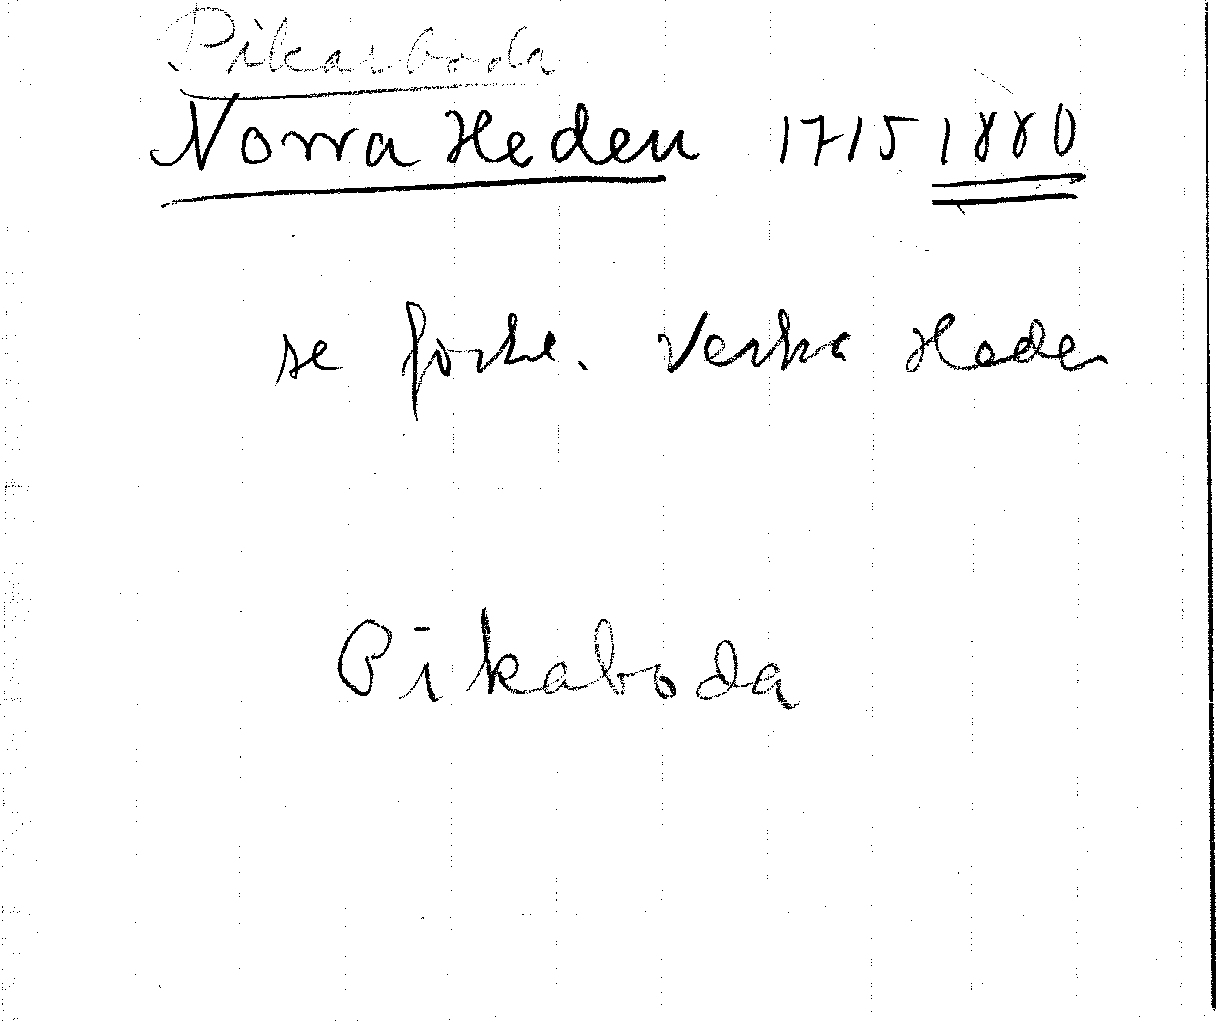 Pikarboda
Norra Heden 1715 1880
se förte. Verka Heden
Pikaboda